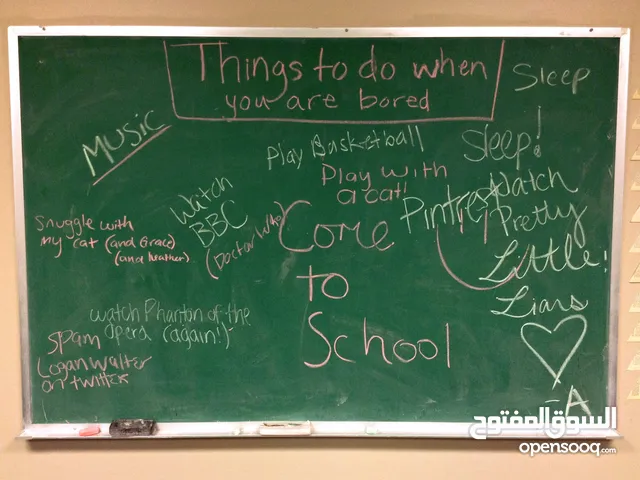 Things to do when
you are bored
Sleep
MUSIC
Play Basketball
Sleep!
Play with
a cat!
Watch
BBC
(Doctor Who)
Pintrest
Watch
Pretty
Little!
Liars
-A
Snuggle with
my cat (and Grace)
(and Walter)
Come
to
School
watch Phantom of the
opera (again!)
Spam
Logan Walter
on twitter
السوق المفتوح
opensooq.com